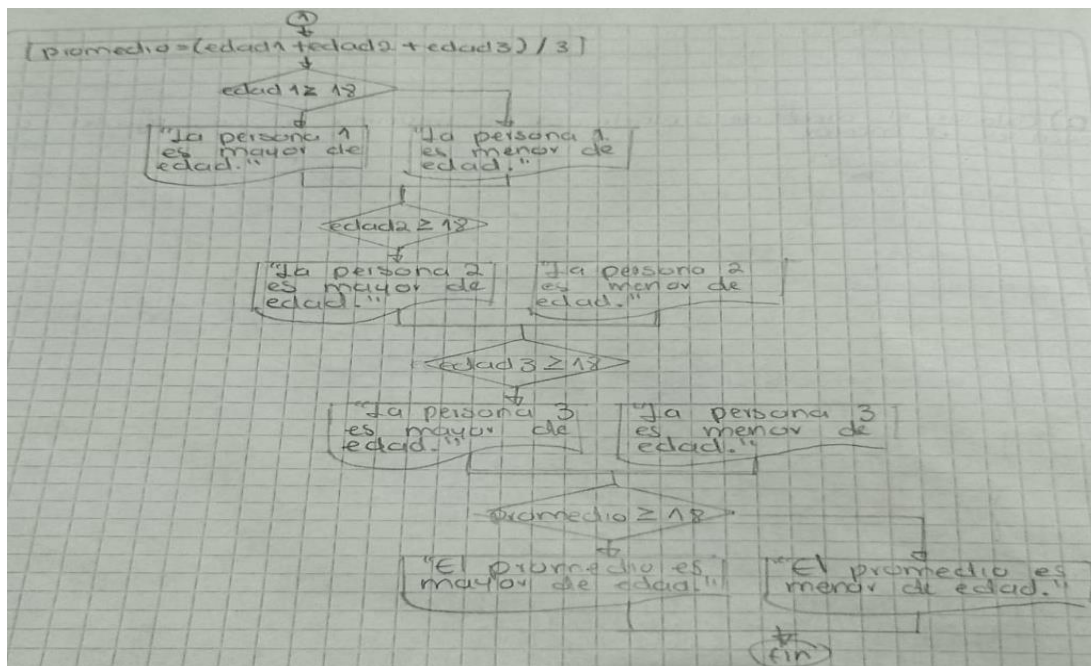 1
[promedio=(edad1+edad2+edad3)/3]
edad1≥18
"La persona 1
es mayor de
edad."
"La persona 1
es menor de
edad."
edad2≥18
"La persona 2
es mayor de
edad."
"La persona 2
es menor de
edad."
edad3≥18
"La persona 3
es mayor de
edad."
"La persona 3
es menor de
edad."
promedio≥18
"El promedio es
mayor de edad."
"El promedio es
menor de edad."
fin